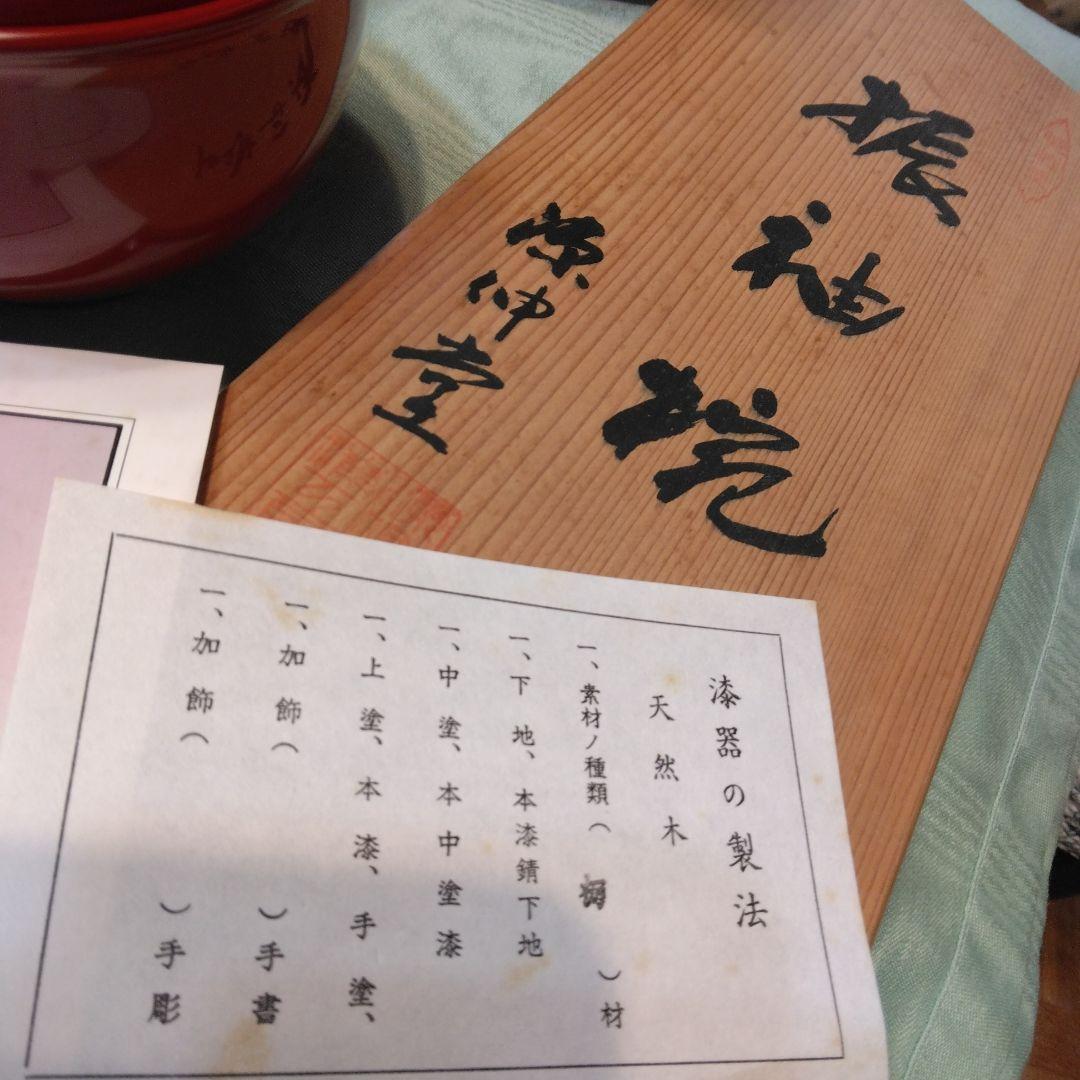 振袖椀
源仲堂
漆器の製法
天然木
一、素材ノ種類（ ）材
一、下地、本漆錆下地
一、中塗、本中塗漆
一、上塗、本漆、手塗、
一、加飾（ ）手書
一、加飾（ ）手彫